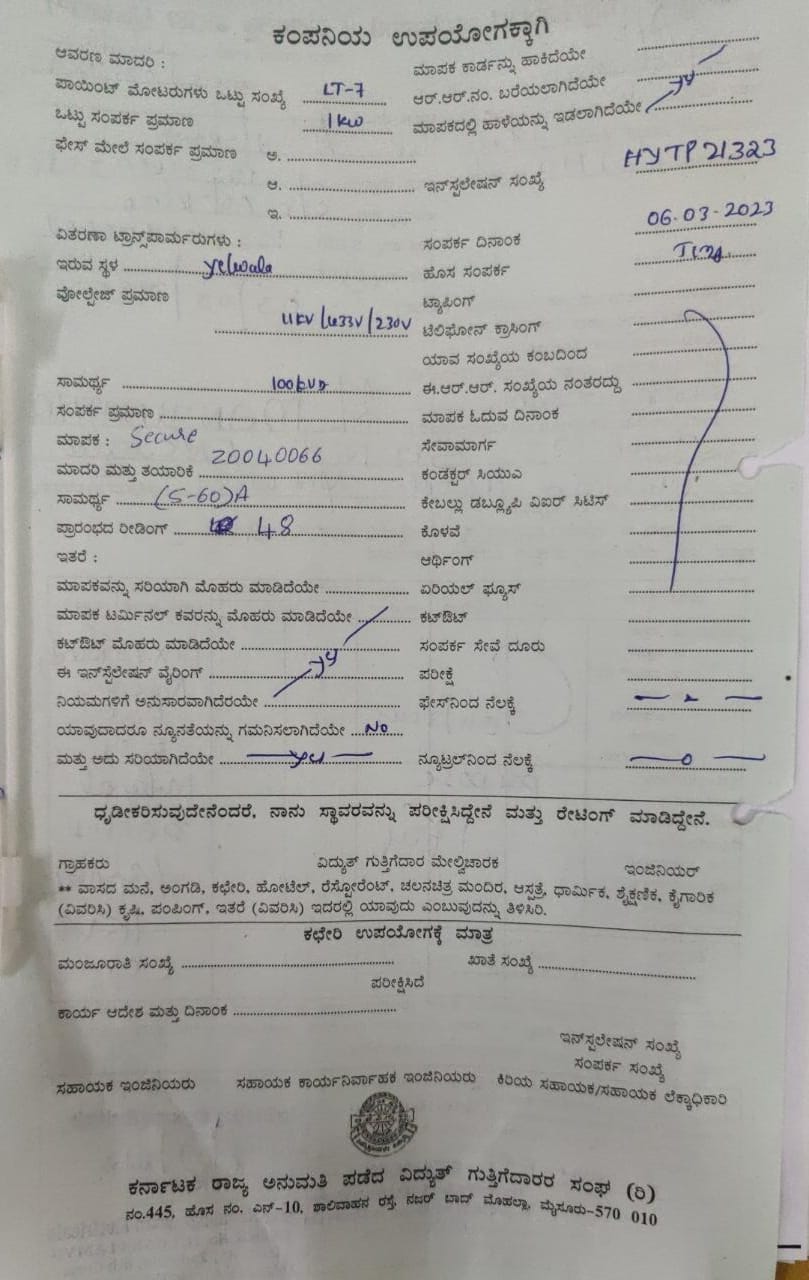 ಕಂಪನಿಯ ಉಪಯೋಗಕ್ಕಾಗಿ
ಆವರಣ ಮಾದರಿ :
ಪಾಯಿಂಟ್ ಮೋಟರುಗಳು ಒಟ್ಟು ಸಂಖ್ಯೆ LT-7
ಒಟ್ಟು ಸಂಪರ್ಕ ಪ್ರಮಾಣ 1 kw
ಫೇಸ್ ಮೇಲೆ ಸಂಪರ್ಕ ಪ್ರಮಾಣ ಅ.
ಆ.
ಇ.
ವಿತರಣಾ ಟ್ರಾನ್ಸ್‌ಪಾರ್ಮರುಗಳು :
ಇರುವ ಸ್ಥಳ Yelwala
ವೋಲ್ಟೇಜ್ ಪ್ರಮಾಣ
11KV/433V/230V
ಸಾಮರ್ಥ್ಯ 100kVA
ಸಂಪರ್ಕ ಪ್ರಮಾಣ
ಮಾಪಕ : Secure
ಮಾದರಿ ಮತ್ತು ತಯಾರಿಕೆ 20040066
ಸಾಮರ್ಥ್ಯ (5-60)A
ಪ್ರಾರಂಭದ ರೀಡಿಂಗ್ 48
ಇತರೆ :
ಮಾಪಕವನ್ನು ಸರಿಯಾಗಿ ಮೊಹರು ಮಾಡಿದೆಯೇ
ಮಾಪಕ ಟರ್ಮಿನಲ್ ಕವರನ್ನು ಮೊಹರು ಮಾಡಿದೆಯೇ
ಕಟ್‌ಔಟ್ ಮೊಹರು ಮಾಡಿದೆಯೇ
ಈ ಇನ್‌ಸ್ಟಲೇಷನ್ ವೈರಿಂಗ್
ನಿಯಮಗಳಿಗೆ ಅನುಸಾರವಾಗಿದೆರಯೇ
ಯಾವುದಾದರೂ ನ್ಯೂನತೆಯನ್ನು ಗಮನಿಸಲಾಗಿದೆಯೇ No
ಮತ್ತು ಅದು ಸರಿಯಾಗಿದೆಯೇ
ಮಾಪಕ ಕಾರ್ಡನ್ನು ಹಾಕಿದೆಯೇ
ಆರ್.ಆರ್.ನಂ. ಬರೆಯಲಾಗಿದೆಯೇ
ಮಾಪಕದಲ್ಲಿ ಹಾಳೆಯನ್ನು ಇಡಲಾಗಿದೆಯೇ
ಇನ್‌ಸ್ಟಲೇಷನ್ ಸಂಖ್ಯೆ HYTP21323
ಸಂಪರ್ಕ ದಿನಾಂಕ 06.03-2023
ಹೊಸ ಸಂಪರ್ಕ
ಟ್ಯಾಪಿಂಗ್
ಟೆಲಿಫೋನ್ ಕ್ರಾಸಿಂಗ್
ಯಾವ ಸಂಖ್ಯೆಯ ಕಂಬದಿಂದ
ಈ.ಆರ್.ಆರ್. ಸಂಖ್ಯೆಯ ನಂತರದ್ದು
ಮಾಪಕ ಓದುವ ದಿನಾಂಕ
ಸೇವಾಮಾರ್ಗ
ಕಂಡಕ್ಟರ್ ಸಿಯುಎ
ಕೇಬಲ್ಲು ಡಬ್ಲ್ಯೂಪಿ ವಿಐರ್ ಸಿಟಿಸ್
ಕೊಳವೆ
ಆರ್ಥಿಂಗ್
ಏರಿಯಲ್ ಫ್ಯೂಸ್
ಕಟ್‌ಔಟ್
ಸಂಪರ್ಕ ಸೇವೆ ದೂರು
ಪರೀಕ್ಷೆ
ಫೇಸ್‌ನಿಂದ ನೆಲಕ್ಕೆ
ನ್ಯೂಟ್ರಲ್‌ನಿಂದ ನೆಲಕ್ಕೆ — 0 —
ಧೃಡೀಕರಿಸುವುದೇನೆಂದರೆ, ನಾನು ಸ್ಥಾವರವನ್ನು ಪರೀಕ್ಷಿಸಿದ್ದೇನೆ ಮತ್ತು ರೇಟಿಂಗ್ ಮಾಡಿದ್ದೇನೆ.
ಗ್ರಾಹಕರು ವಿದ್ಯುತ್ ಗುತ್ತಿಗೆದಾರ ಮೇಲ್ವಿಚಾರಕ ಇಂಜಿನಿಯರ್
** ವಾಸದ ಮನೆ, ಅಂಗಡಿ, ಕಛೇರಿ, ಹೋಟೆಲ್, ರೆಸ್ಟೋರೆಂಟ್, ಚಲನಚಿತ್ರ ಮಂದಿರ, ಆಸ್ಪತ್ರೆ, ಧಾರ್ಮಿಕ, ಶೈಕ್ಷಣಿಕ, ಕೈಗಾರಿಕ
(ವಿವರಿಸಿ) ಕೃಷಿ, ಪಂಪಿಂಗ್, ಇತರೆ (ವಿವರಿಸಿ) ಇದರಲ್ಲಿ ಯಾವುದು ಎಂಬುವುದನ್ನು ತಿಳಿಸಿರಿ.
ಕಛೇರಿ ಉಪಯೋಗಕ್ಕೆ ಮಾತ್ರ
ಮಂಜೂರಾತಿ ಸಂಖ್ಯೆ ಖಾತೆ ಸಂಖ್ಯೆ
ಪರೀಕ್ಷಿಸಿದೆ
ಕಾರ್ಯ ಆದೇಶ ಮತ್ತು ದಿನಾಂಕ
ಇನ್‌ಸ್ಟಲೇಷನ್ ಸಂಖ್ಯೆ
ಸಂಪರ್ಕ ಸಂಖ್ಯೆ
ಸಹಾಯಕ ಇಂಜಿನಿಯರು ಸಹಾಯಕ ಕಾರ್ಯನಿರ್ವಾಹಕ ಇಂಜಿನಿಯರು ಕಿರಿಯ ಸಹಾಯಕ/ಸಹಾಯಕ ಲೆಕ್ಕಾಧಿಕಾರಿ
ಕರ್ನಾಟಕ ರಾಜ್ಯ ಅನುಮತಿ ಪಡೆದ ವಿದ್ಯುತ್ ಗುತ್ತಿಗೆದಾರರ ಸಂಘ (ರಿ)
ನಂ.445, ಹೊಸ ನಂ. ಎನ್-10, ಶಾಲಿವಾಹನ ರಸ್ತೆ, ನಜರ್ ಬಾದ್ ಮೊಹಲ್ಲಾ, ಮೈಸೂರು-570 010